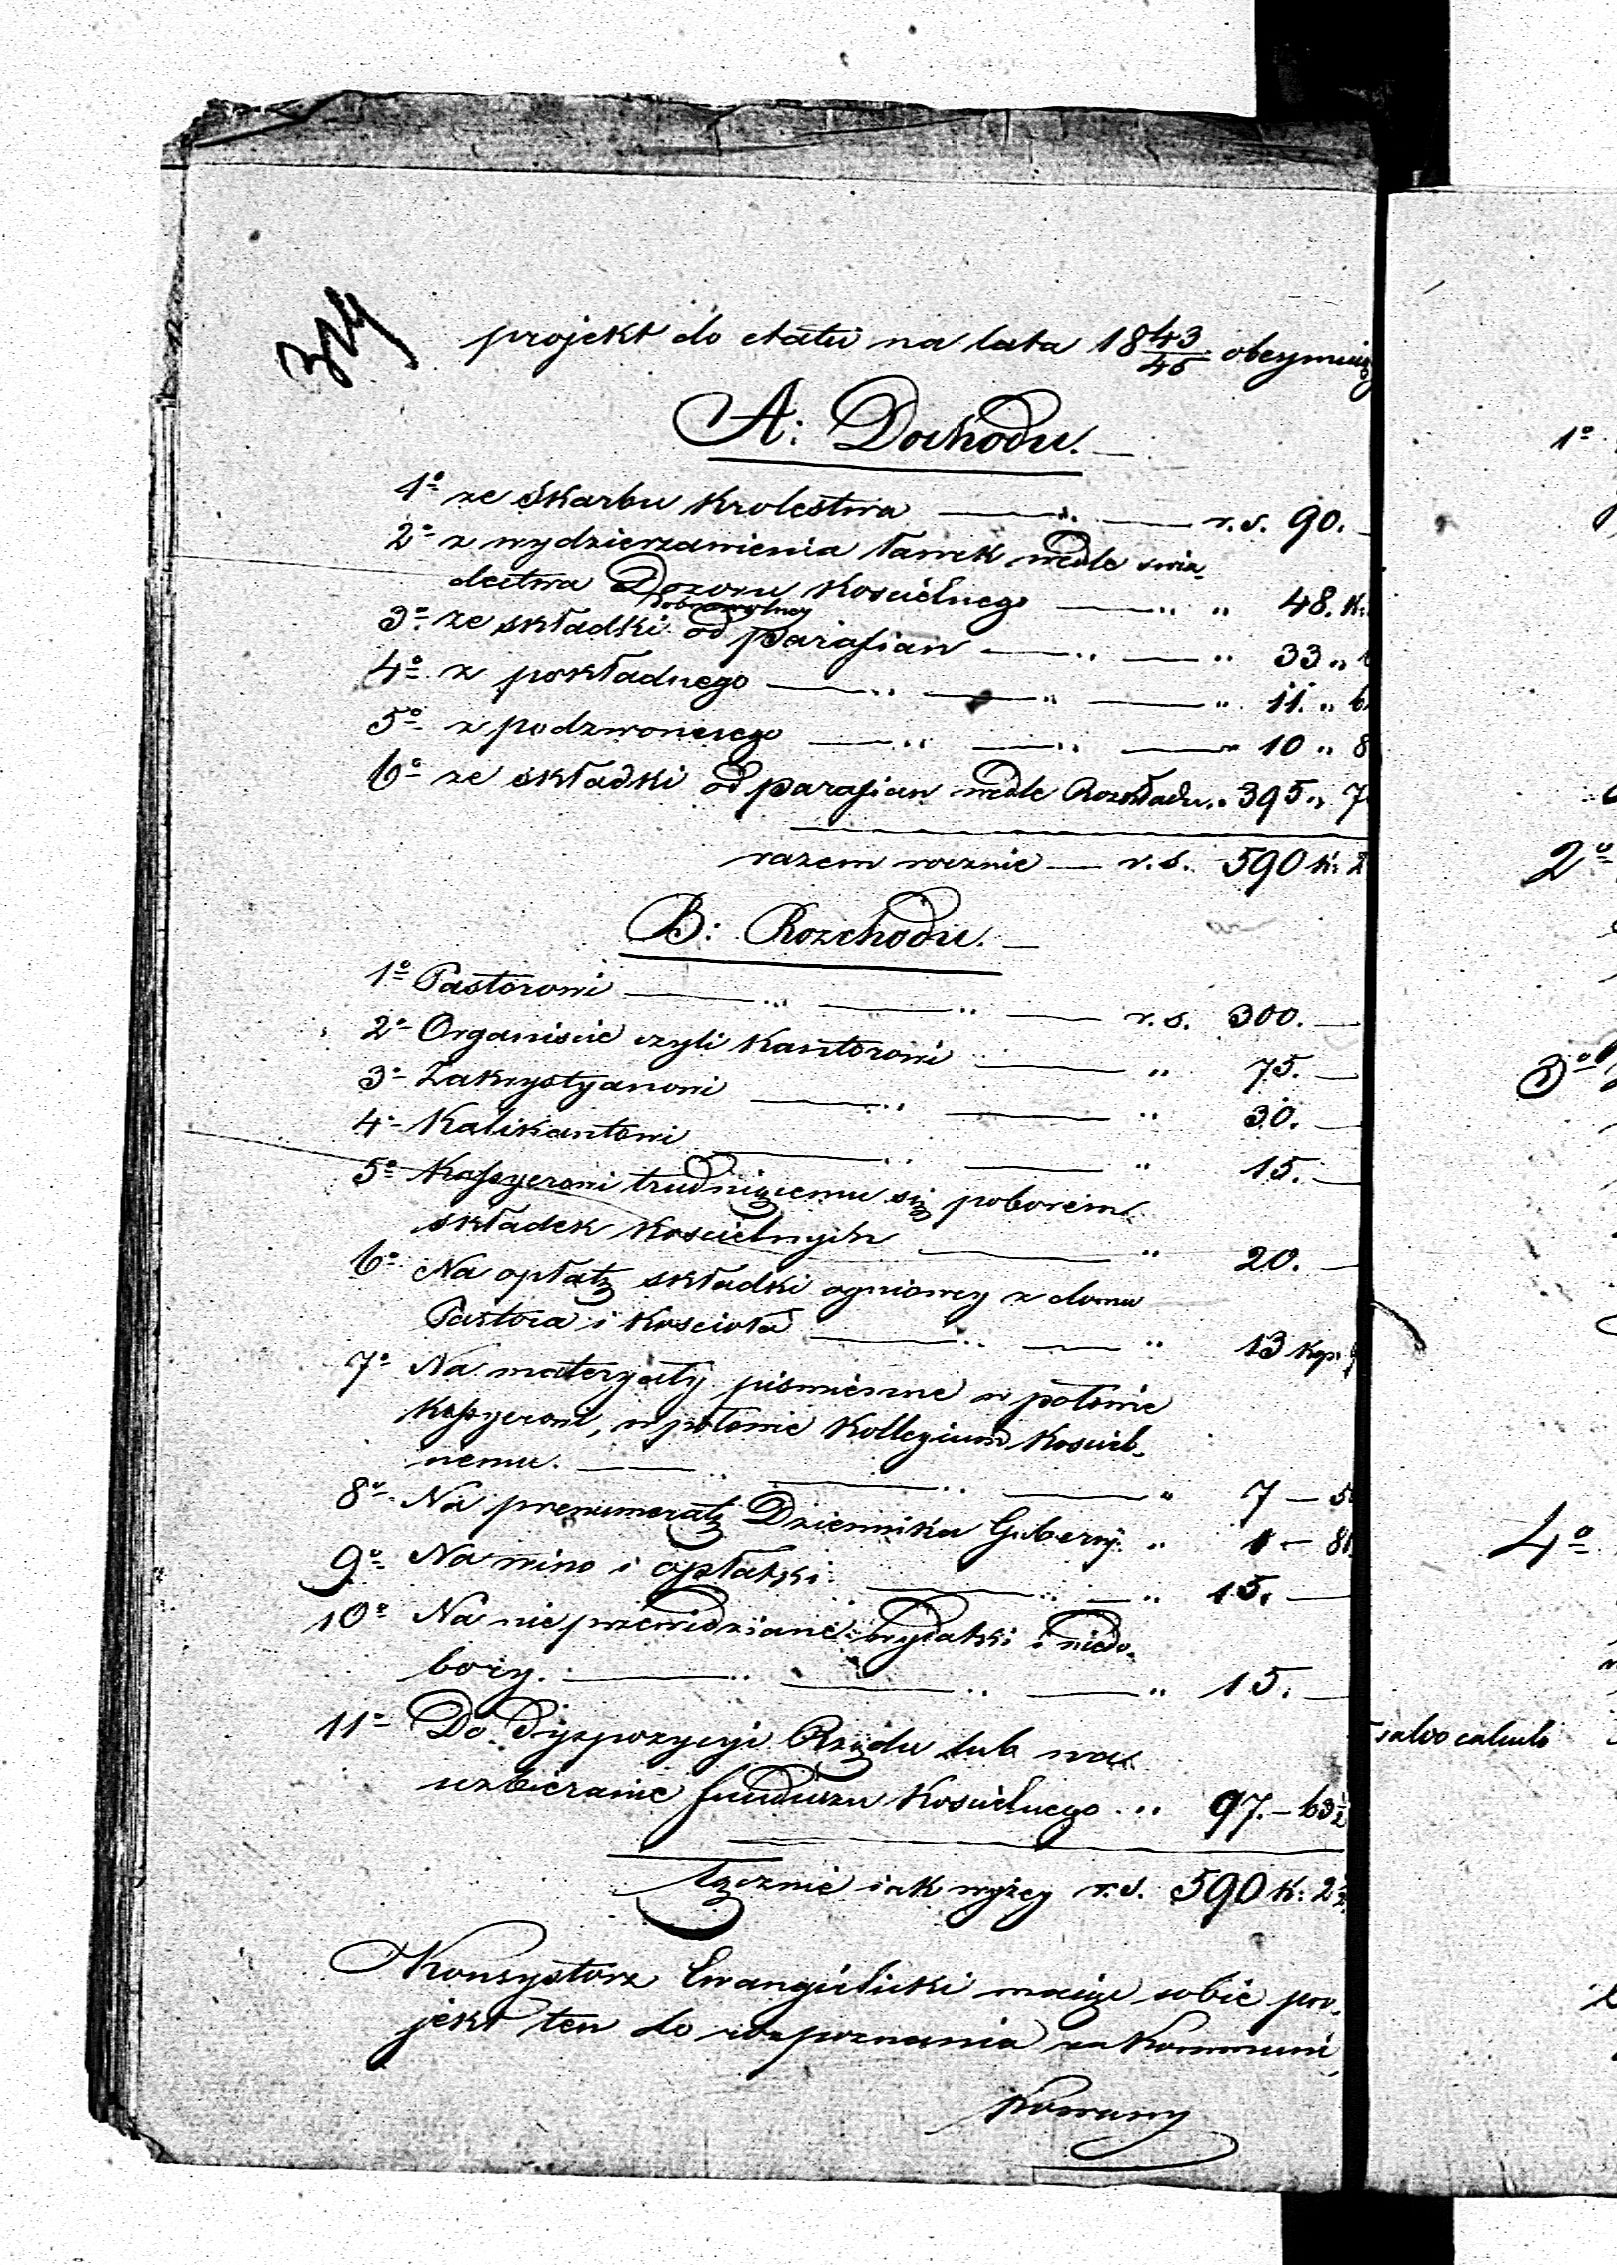 374
projekt do etatu na lata 18 43/45 obeymuią
A: Dochodu.
1o ze skarbu Krolestwa — „ — r. s. 90. —
2o z wydzierzawienia ławek wedle swia-
dectwa Dozoru Koscielnego — „ „ 48. K:
dobrowolney
3o ze składki od parafian — „ — „ 33 „
4o z pokładnego — „ — „ — „ 11. „ 6
5o z podzwonnego — „ — „ — „ 10 „ 8
6o ze składki od parafian wedle Rozkładu „ 395 „ 7
razem rocznie — r. s. 590 k: 2
B: Rozchodu.
1o Pastorowi — „ — „ — r. s. 300. —
2o Organiscie czyli Kantorowi — „ 75. —
3o Zakrystyanowi — „ — „ 30. —
4o Kalikantowi — „ — „ 15. —
5o Kassyerowi trudniącemu się poborem
składek Koscielnych — „ 20. —
6o Na opłatę składki ogniowey z domu
Pastora i Kościoła — „ — „ 13 kop.
7o Na materyały pismienne w połowie
Kassyerowi, w połowie Kollegium Kosciel-
nemu. — „ — „ — „ 7 — 5
8o Na prenumeratę Dziennika Gubern: „ 1 — 81
9o Na wino i opłatki — „ — „ 15. —
10o Na nieprzewidziane wydatki i niedo-
bory. — „ — „ — „ 15. —
11o Do Dyspozycyi Rządu lub na
uzbieranie funduszu Koscielnego „ 97. — 63 1/2
Łącznie iak wyżey r. s. 590 k: 2 1/2
Konsystorz Ewangielicki maiąc sobie pro-
jekt ten do rozpoznania zakommuni-
kowany
1o
2o
3o
4o
salvo calculo